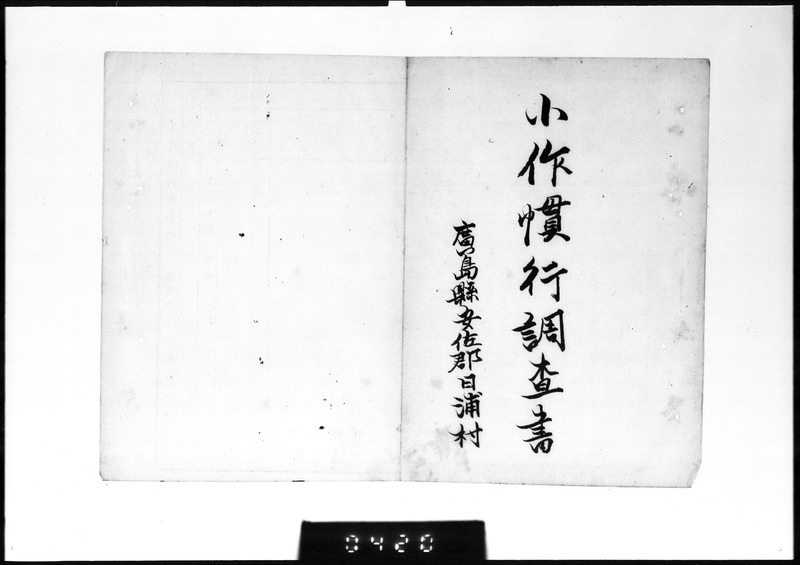 小作慣行調査書
廣島縣安佐郡日浦村
0420